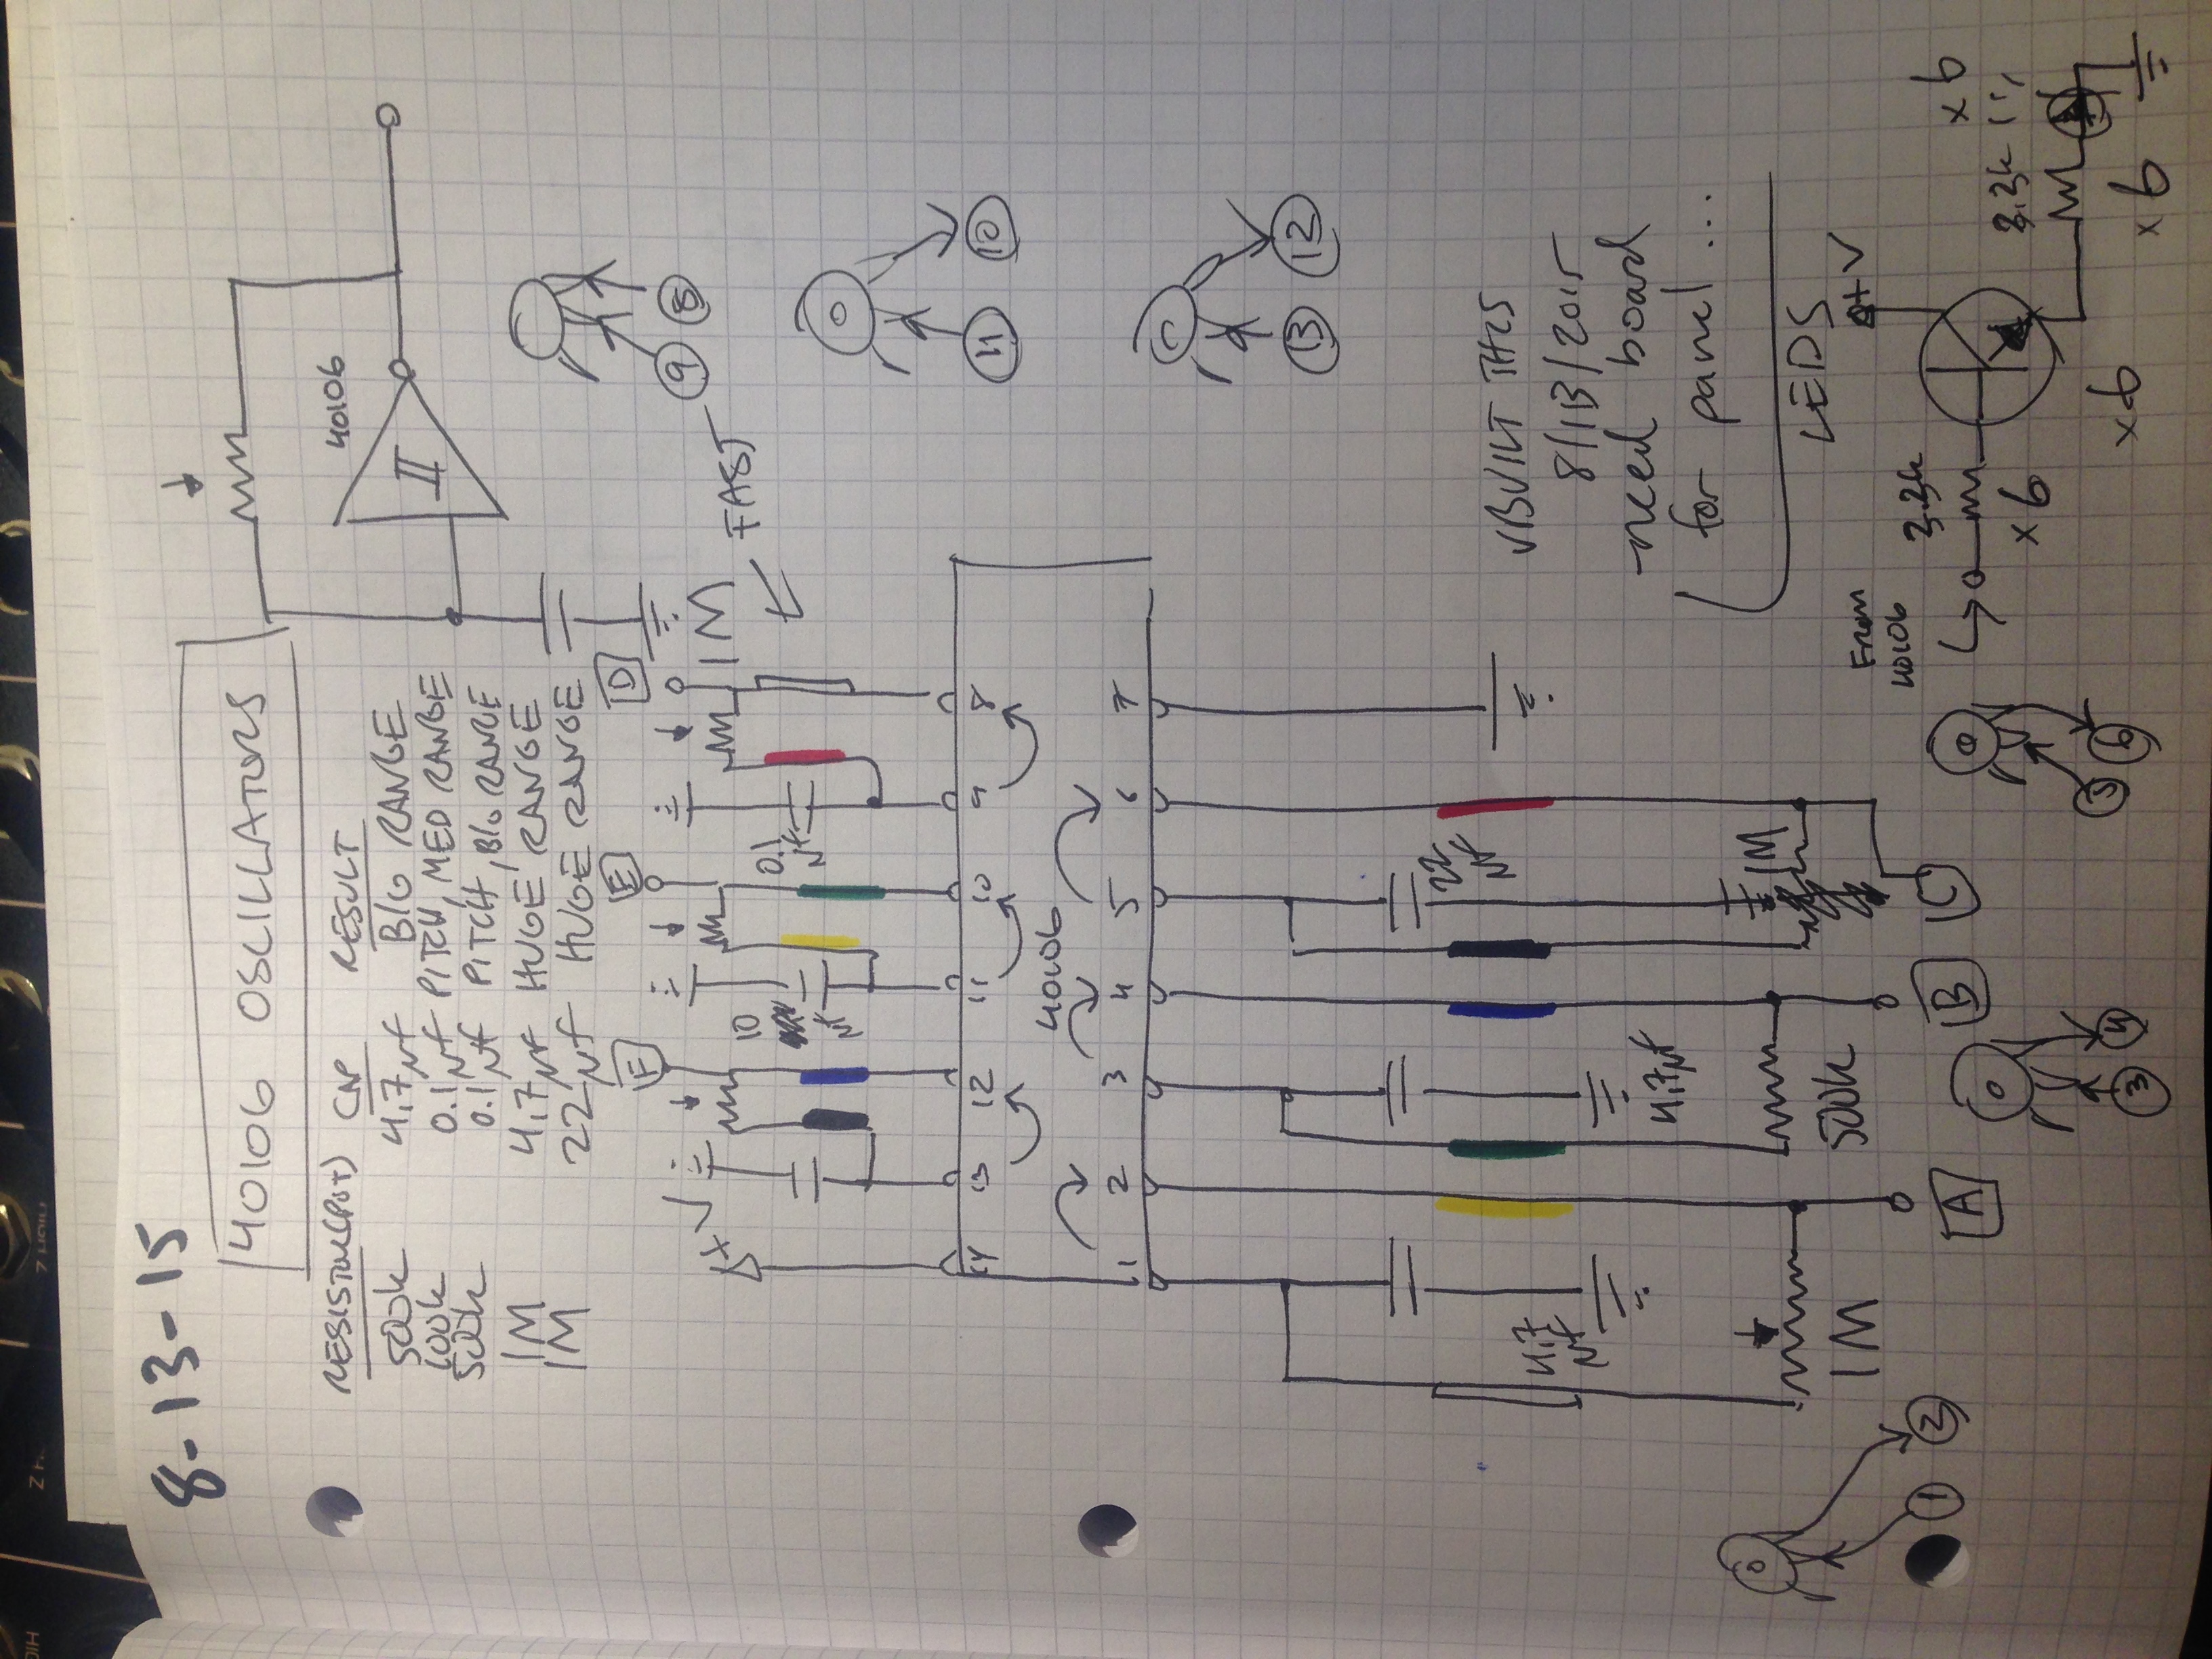 Z HIGH
8-13-15
40106 OSCILLATORS
RESISTOR(POT) CAP RESULT
500k 4.7µf B/G RANGE
100k 0.1µf PITCH, MED RANGE
500k 0.1µf PITCH, B/G RANGE
1M 4.7µf HUGE RANGE
1M 22µf HUGE RANGE
40106
II
F E D
+V
10 µf
0.1 µf
1M
FAST
9 8
11 10
13 12
14 13 12 11 10 9 8
40106
1 2 3 4 5 6 7
4.7 µf
4.7µf
22 µf
1M
500k
1M
1 2
A B C
3 4
5 6
√BUILT THIS
8/13/2015
-need board
for panel ...
LEDS
+V
From
40106
3.3k
x6
x6
3.3k
x6
x6